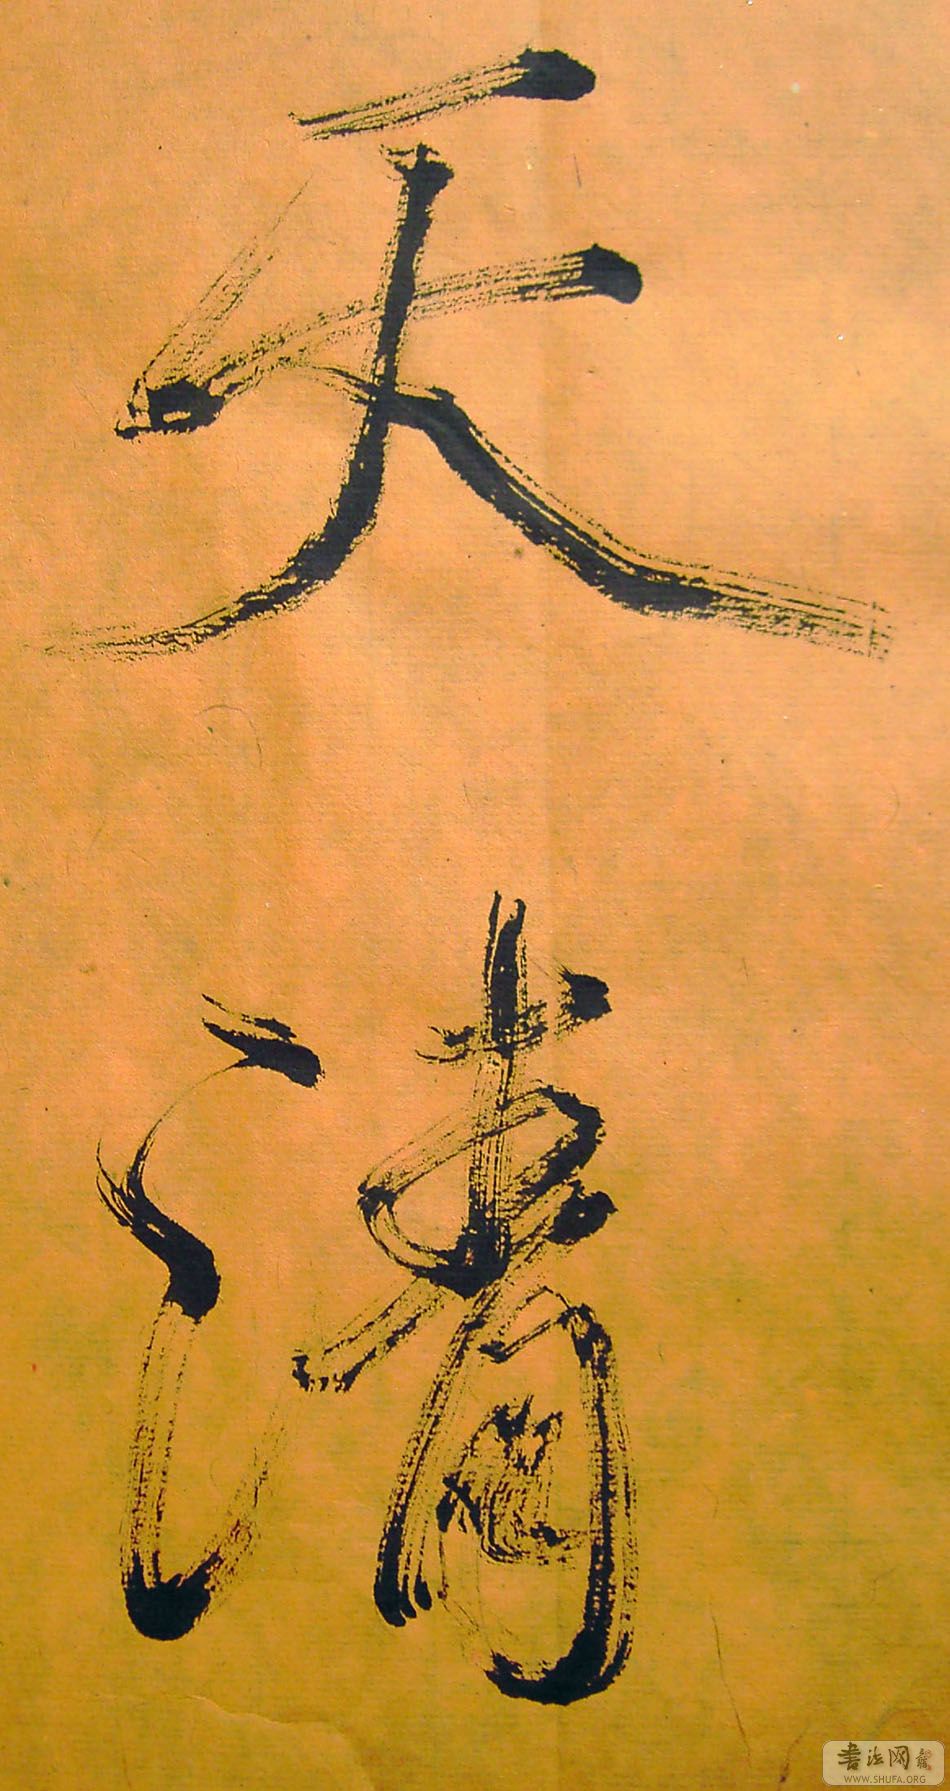 天
清
書法网
WWW.SHUFA.ORG